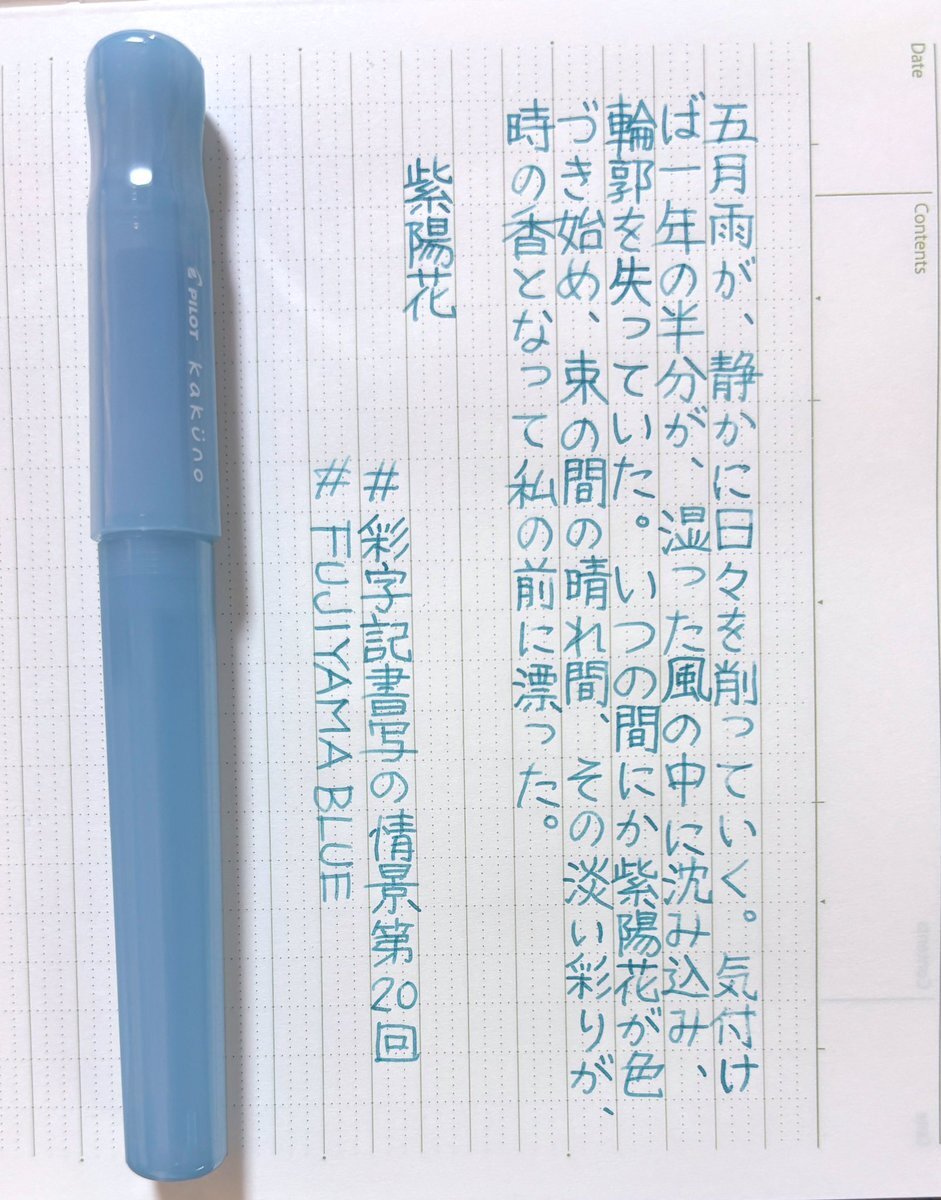 五月雨が、静かに日々を削っていく。気付け
ば一年の半分が、湿った風の中に沈み込み、
輪郭を失っていた。いつの間にか紫陽花が色
づき始め、束の間の晴れ間、その淡い彩りが、
時の香となって私の前に漂った。
紫陽花
#彩字記書写の情景第20回
#FUJIYAMA BLUE
PILOT kaküno
Date
Contents